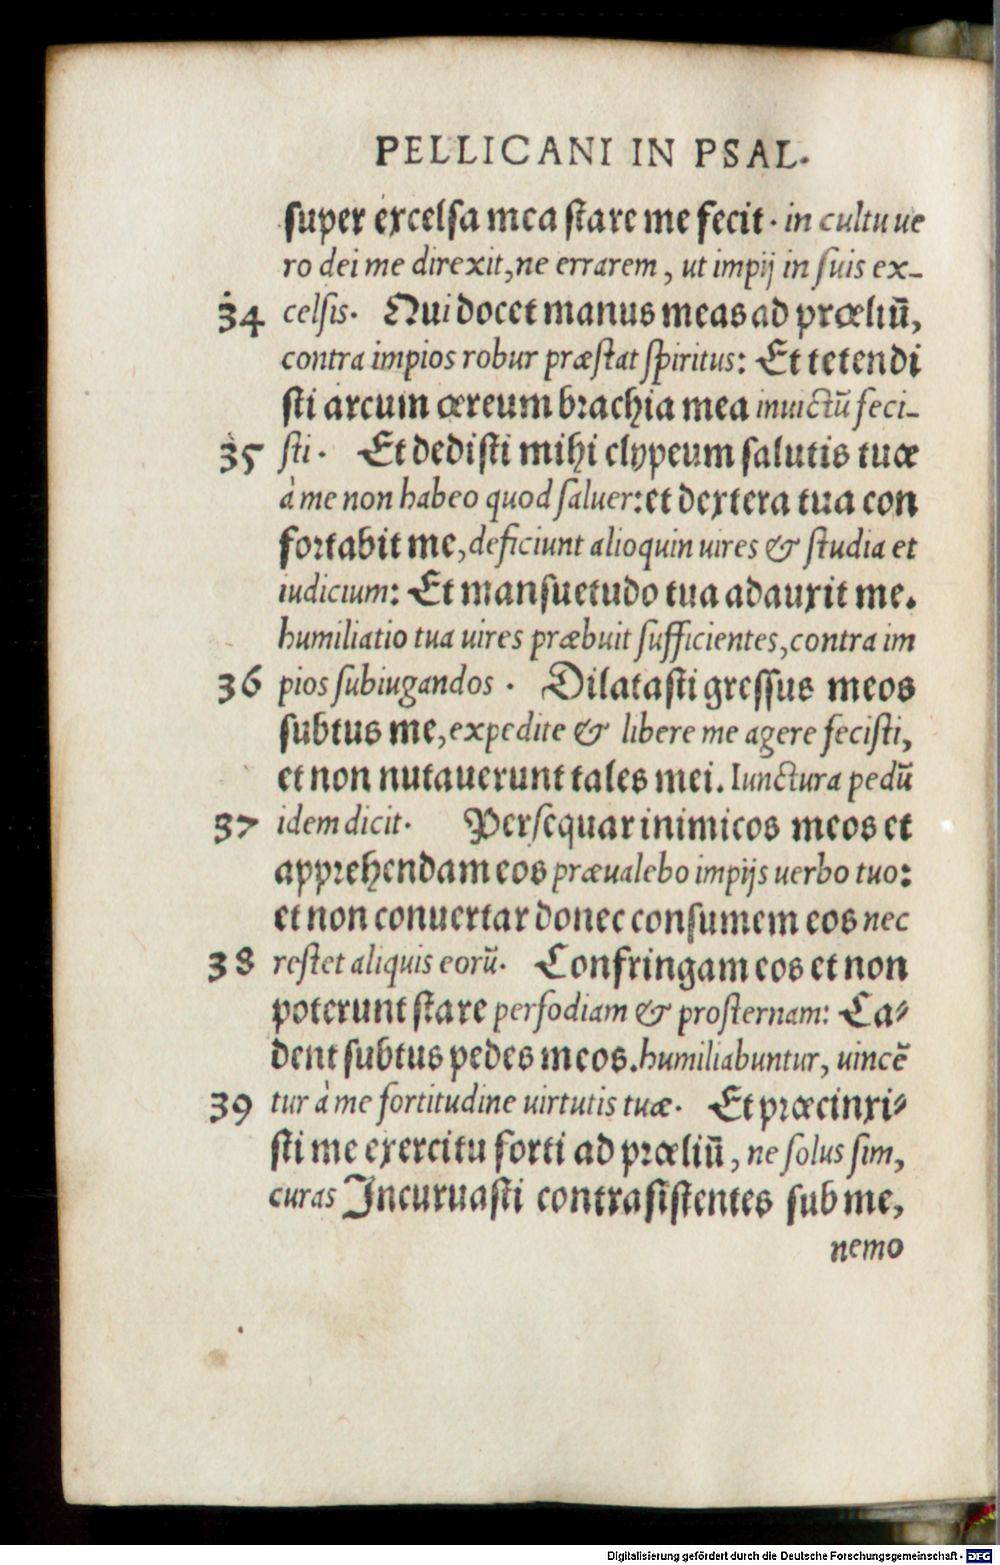 PELLICANI IN PSAL.
super excelsa mea stare me fecit. in cultu ue
ro dei me direxit, ne errarem, ut impij in suis ex-
34 celsis. Qui docet manus meas ad prœliũ,
contra impios robur præstat spiritus: Et tetendi
sti arcum œreum brachia mea inuictũ feci-
35 sti. Et dedisti mihi clypeum salutis tuœ
à me non habeo quod saluer: et dextera tua con
fortabit me, deficiunt alioquin uires & studia et
iudicium: Et mansuetudo tua adauxit me.
humiliatio tua uires præbuit sufficientes, contra im
36 pios subiugandos. Dilatasti gressus meos
subtus me, expedite & libere me agere fecisti,
et non nutauerunt tales mei. Iunctura pedũ
37 idem dicit. Persequar inimicos meos et
apprehendam eos præualebo impijs uerbo tuo:
et non conuertar donec consumem eos nec
38 restet aliquis eorũ. Confringam eos et non
poterunt stare perfodiam & prosternam: Ca-
dent subtus pedes meos. humiliabuntur, uincẽ
39 tur à me fortitudine uirtutis tuæ. Et prœcinxi-
sti me exercitu forti ad prœliũ, ne solus sim,
curas Incuruasti contrasistentes sub me,
nemo
Digitalisierung gefördert durch die Deutsche Forschungsgemeinschaft - DFG